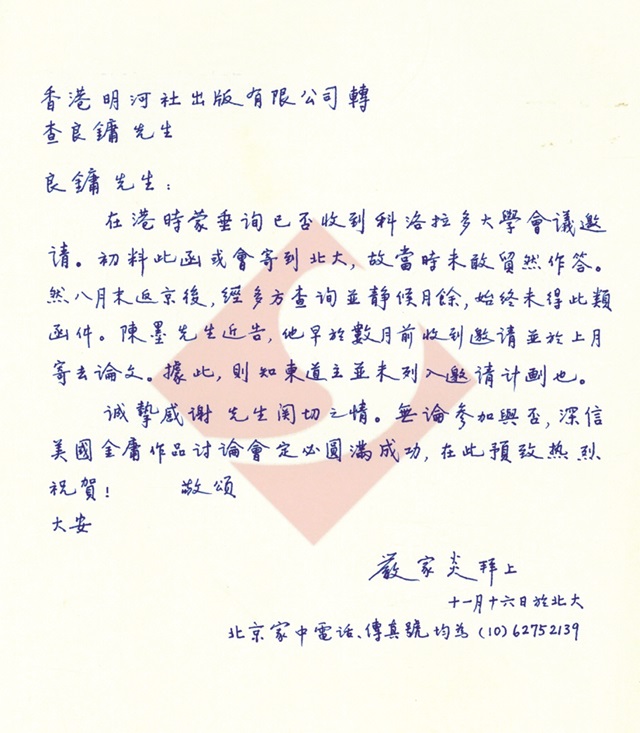 香港明河社出版有限公司轉
查良鏞先生
良鏞先生：
在港時蒙垂询已否收到科洛拉多大學會議邀
请。初料此函或會寄到北大，故當時未敢贸然作答。
然八月末返京後，經多方查询並静候月餘，始终未得此類
函件。陳墨先生近告，他早於數月前收到邀请並於上月
寄去论文。據此，则知東道主並未列入邀请计劃也。
诚挚感谢 先生関切之情。無論参加與否，深信
美國金庸作品讨論會定必圆滿成功，在此預致热烈
祝賀！ 敬颂
大安
嚴家炎拜上
十一月十六日於北大
北京家中電话、傳真號均為 (10)62752139